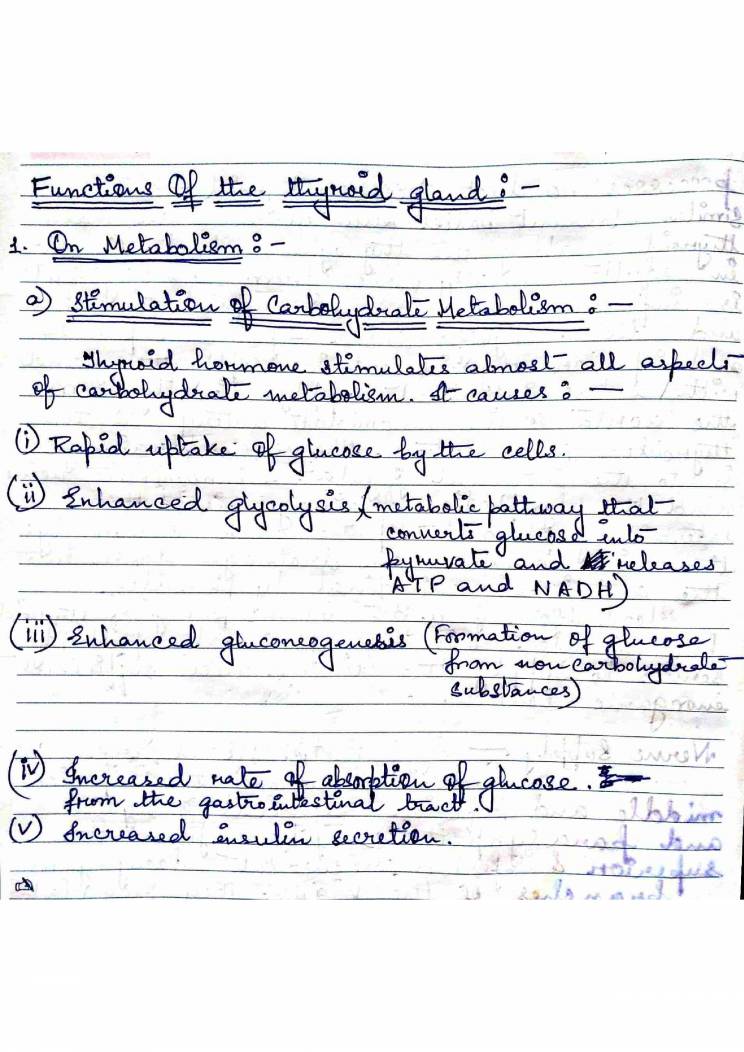 Functions Of the thyroid gland :-
1. On Metabolism :-
a) Stimulation of Carbohydrate Metabolism : —
Thyroid hormone stimulates almost all aspects
of carbohydrate metabolism. It causes : —
(i) Rapid uptake of glucose by the cells.
(ii) Enhanced glycolysis, (metabolic pathway that
converts glucose into
pyruvate and releases
ATP and NADH)
(iii) Enhanced gluconeogenesis (Formation of glucose
from non carbohydrate
substances)
(iv) Increased rate of absorption of glucose.
from the gastrointestinal tract.
(v) Increased insulin secretion.